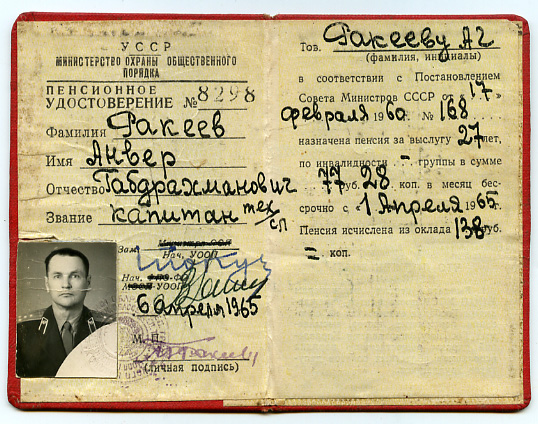 УССР
МИНИСТЕРСТВО ОХРАНЫ ОБЩЕСТВЕННОГО
ПОРЯДКА
ПЕНСИОННОЕ
УДОСТОВЕРЕНИЕ № 8298
Фамилия Факеев
Имя Анвер
Отчество Габдрахманович
Звание капитан тех/сл
Зам.
Нач. УООП
Нач.
УООП
6 апреля 1965
М. П.
(личная подпись)
Тов. Факееву АГ
(фамилия, инициалы)
в соответствии с Постановлением
Совета Министров СССР от „17"
февраля 1960 № 168
назначена пенсия за выслугу 27 лет,
по инвалидности - группы в сумме
77 руб. 28 коп. в месяц бес-
срочно с „1 Апреля 1965
Пенсия исчислена из оклада 138 руб.
= коп.